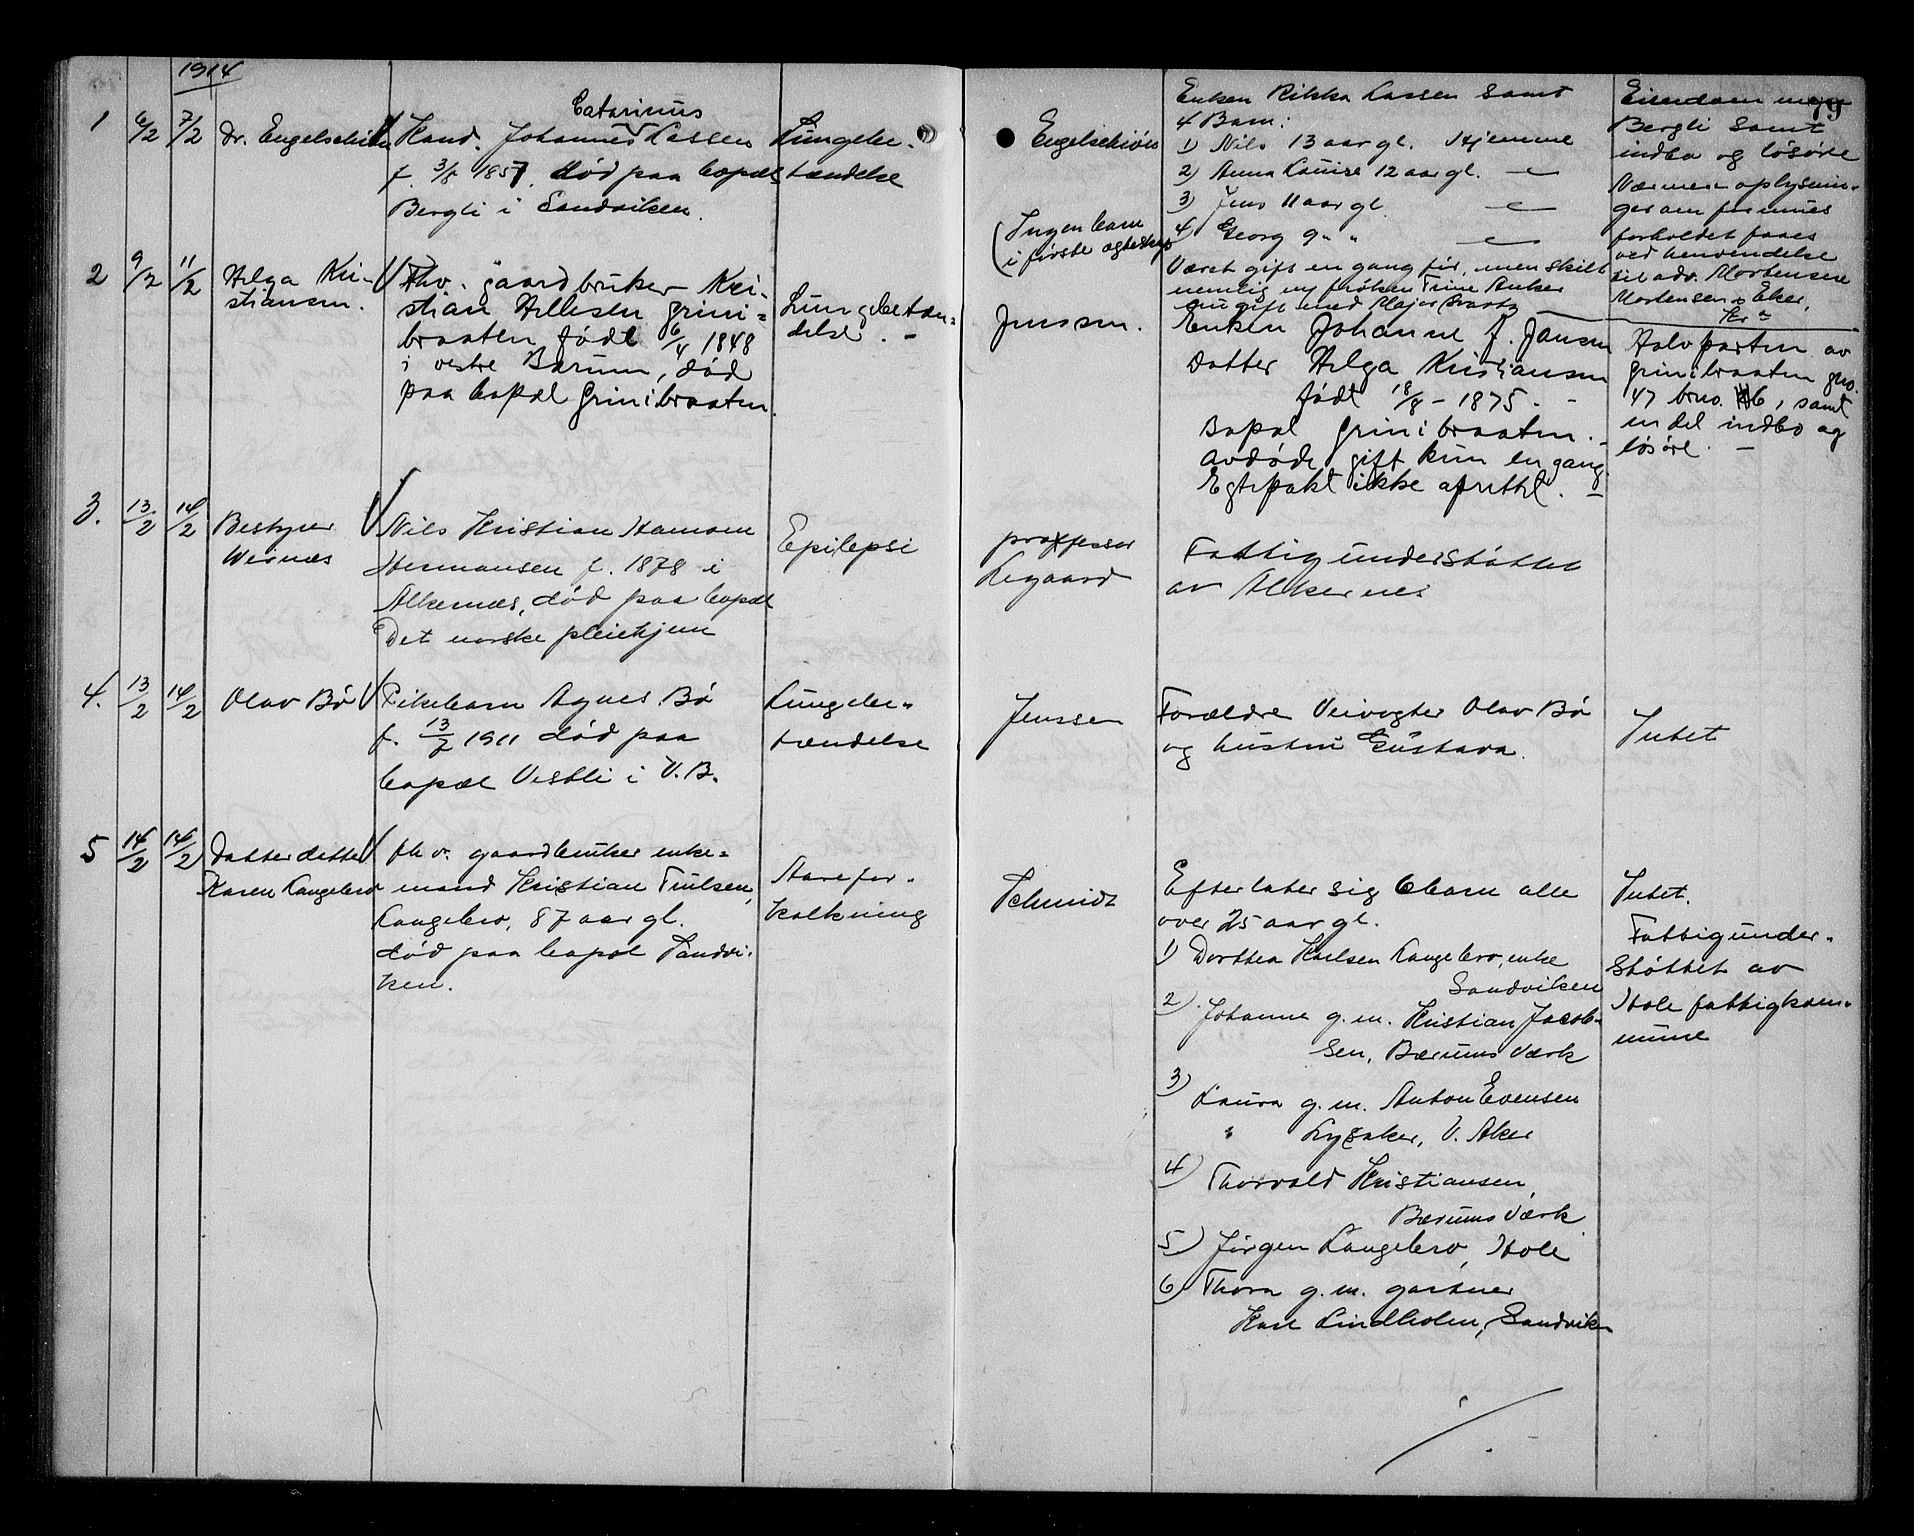 1914
79
1 6/2 7/2 Dr. Engelschiøn
Catarinus
Kand. Johannes Lassen
f. 3/8 1857. død paa bopæl
Bergli i Sandviken.
Lungebe-
tændelse
Engelschiøn
(Ingen barn
i første ægteskap
Enken Rikka Lassen samt
4 Barn:
1) Nils 13 aar gl. Hjemme
2) Anna Louise 12 aar gl. —
3) Jens 11 aar gl. —
4) Georg 9 " " —
Været gift en gang før, men skilt
nemlig m/ frøken Trine Anker
nu gift med Major Svartz
Eiendommen
Bergli samt
indbo og løsøre
Nærmere oplysnin-
ger om formues
forholdet faaes
ved henvendelse
til adv. Mortensen
Mortensen & Eker,
Kr a
2 9/2 11/2 Helga Kri-
stiansen.
Fhv. gaardbruker Kri-
stian Hellesen Grini-
braaten, født 6/4 1848
i vestre Bærum, død
paa bopæl Grinibraaten.
Lungebetæn-
delse. -
Jenssen.
Enken Johanne J. Jansen
Datter Helga Kristiansen
født 18/8 - 1875. -
Bopæl Grinibraaten. -
Avdøde gift kun en gang.
Egtepakt ikke oprettet. -
Halvparten av
Grinibraaten gno.
47 bno. 6, samt
en del indbo og
løsøre. -
3. 13/2 14/2 Bestyrer
Weines
Nils Kristian Hanson
Hermansen f. 1878 i
Alkernes, død paa bopæl
Det norske pleiehjem
Epilepsi
professor
Legaard
Fattigunderstøttet
av Alkernes
4. 13/2 14/2 Olav Bø
Pikebarn Agnes Bø
f. 13/7 1911 død paa
bopæl Vestli i V. B.
Lungebe-
tændelse
Jenssen
Forældre Veivogter Olav Bø
og hustru Gustava.
Intet
5 14/2 14/2 Datterdatter
Karen Langebro
fhv. gaardbruker enke-
mand Kristian Trulsen,
Langebro, 87 aar gl.
død paa bopæl Sandvi-
ken.
Aarefor-
kalkning
Schmidt
Efterlater sig 6 barn alle
over 25 aar gl.
1) Dorthea Karlsen Langebro, enke
Sandviken
2) Johanne g. m. Kristian Jacob-
sen, Bærums Værk
3) Laura g. m. Anton Evensen
Lysaker, V. Aker
4) Thorvald Kristiansen,
Bærums Værk
5) Jørgen Langebro, Hole
6) Thora g. m. gartner
Karl Lindholm, Sandviken
Intet.
Fattigunder-
støttet av
Hole fattigkom-
mune